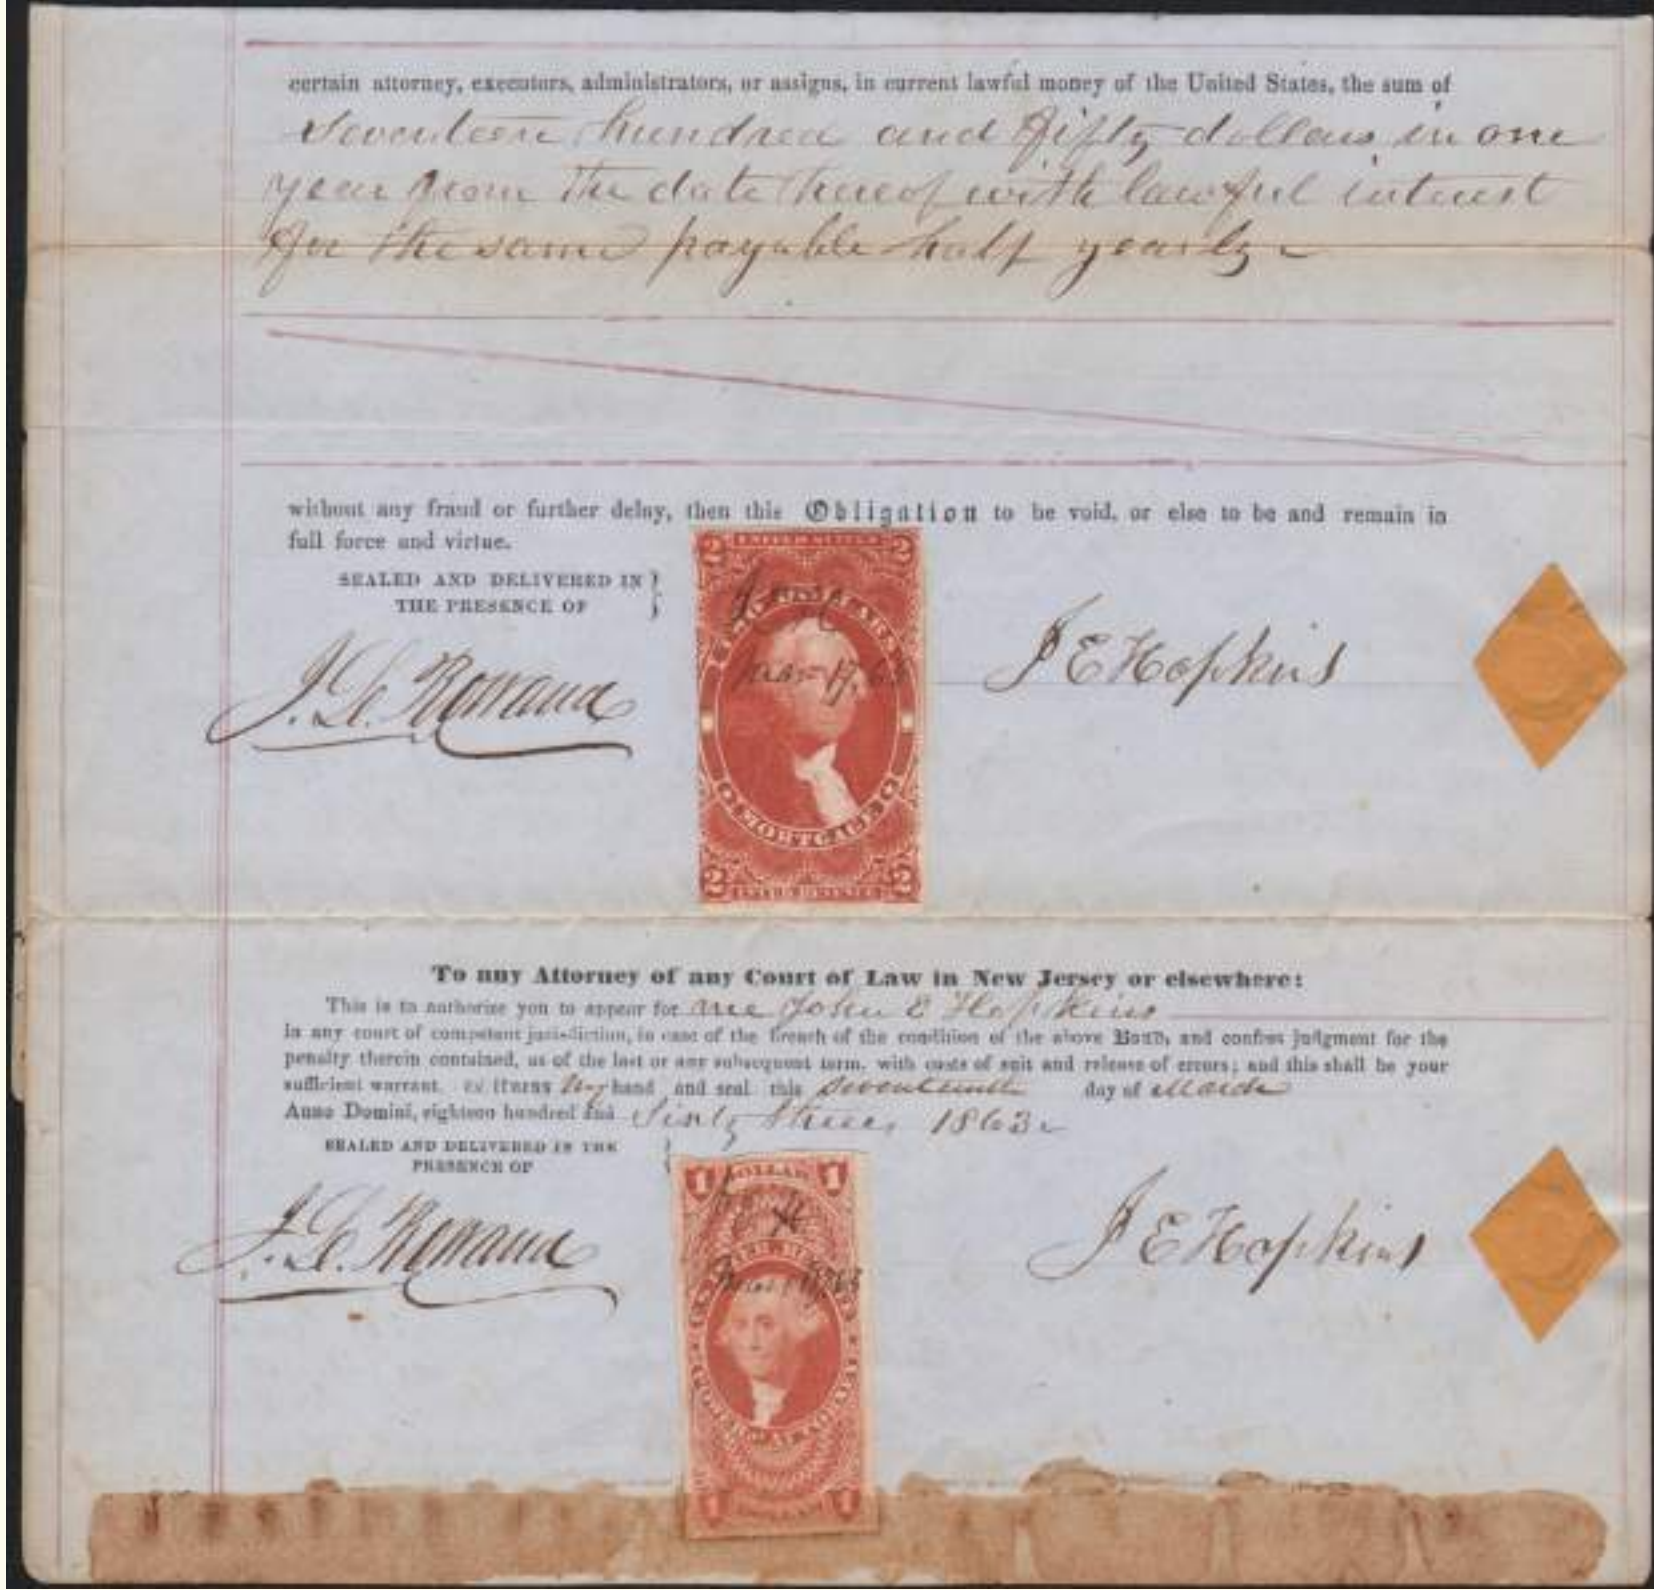 certain attorney, executors, administrators, or assigns, in current lawful money of the United States, the sum of
Seventeen hundred and fifty dollars in one
year from the date hereof with lawful interest
for the same payable half yearly
without any fraud or further delay, then this Obligation to be void, or else to be and remain in
full force and virtue.
SEALED AND DELIVERED IN
THE PRESENCE OF
2 UNITED STATES 2
TWO DOLLARS
Mar 17, 63
MORTGAGE
2 INTER. REVENUE 2
J E Hopkins
To any Attorney of any Court of Law in New Jersey or elsewhere:
This is to authorize you to appear for me John E Hopkins
in any court of competent jurisdiction, in case of the breach of the condition of the above Bond, and confess judgment for the
penalty therein contained, as of the last or any subsequent term, with costs of suit and release of errors; and this shall be your
sufficient warrant. Witness my hand and seal this seventeenth day of March
Anno Domini, eighteen hundred and Sixty three, 1863
SEALED AND DELIVERED IN THE
PRESENCE OF
1 DOLLAR 1
Mar 17, 63
POWER OF ATTORNEY
1 1
J E Hopkins